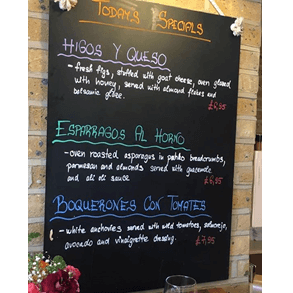 TODAY'S SPECIALS
HIGOS Y QUESO
- fresh figs, stuffed with goat cheese, oven glazed
with honey, served with almond flakes and
balsamic glaze.
£6,95
ESPARRAGOS AL HORNO
- oven roasted asparagus in panko breadcrumbs,
parmesan and almonds served with guacamole
and ali oli sauce
£6,95
BOQUERONES CON TOMATES
- white anchovies served with wild tomatoes, salmorejo,
avocado and vinaigrette dressing.
£7,95